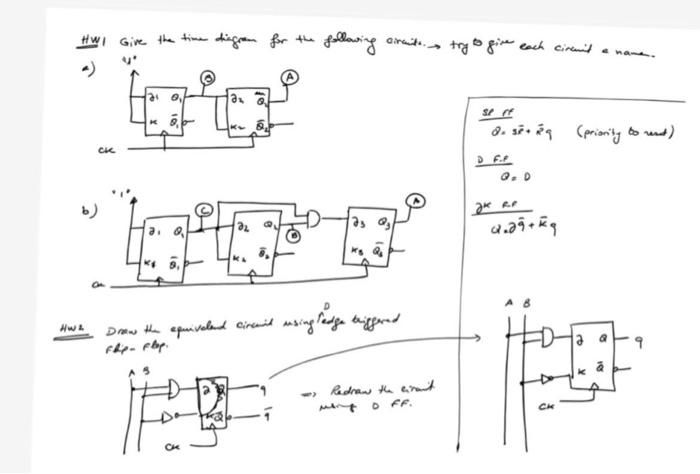 HW1 Give the time diagram for the following circuits. → try to give each circuit a name.
a)
"1"
B
A
J1 Q1
K Q̄1
J2 Q2
K2 Q̄2
CK
b)
"1"
C
B
A
J1 Q1
K1 Q̄1
J2 Q2
K2 Q̄2
J3 Q3
K3 Q̄3
CK
HW2 Draw the equivalend circuit using D edge triggered
Flip-Flop.
A B
J Q
K Q̄
q
q̄
CK
=> Redraw the circuit
using D FF.
SR FF
Q = SR̄ + R̄q (priority to reset)
D F.F
Q = D
JK F.F
Q = Jq̄ + K̄q
A B
J Q
K Q̄
q
CK